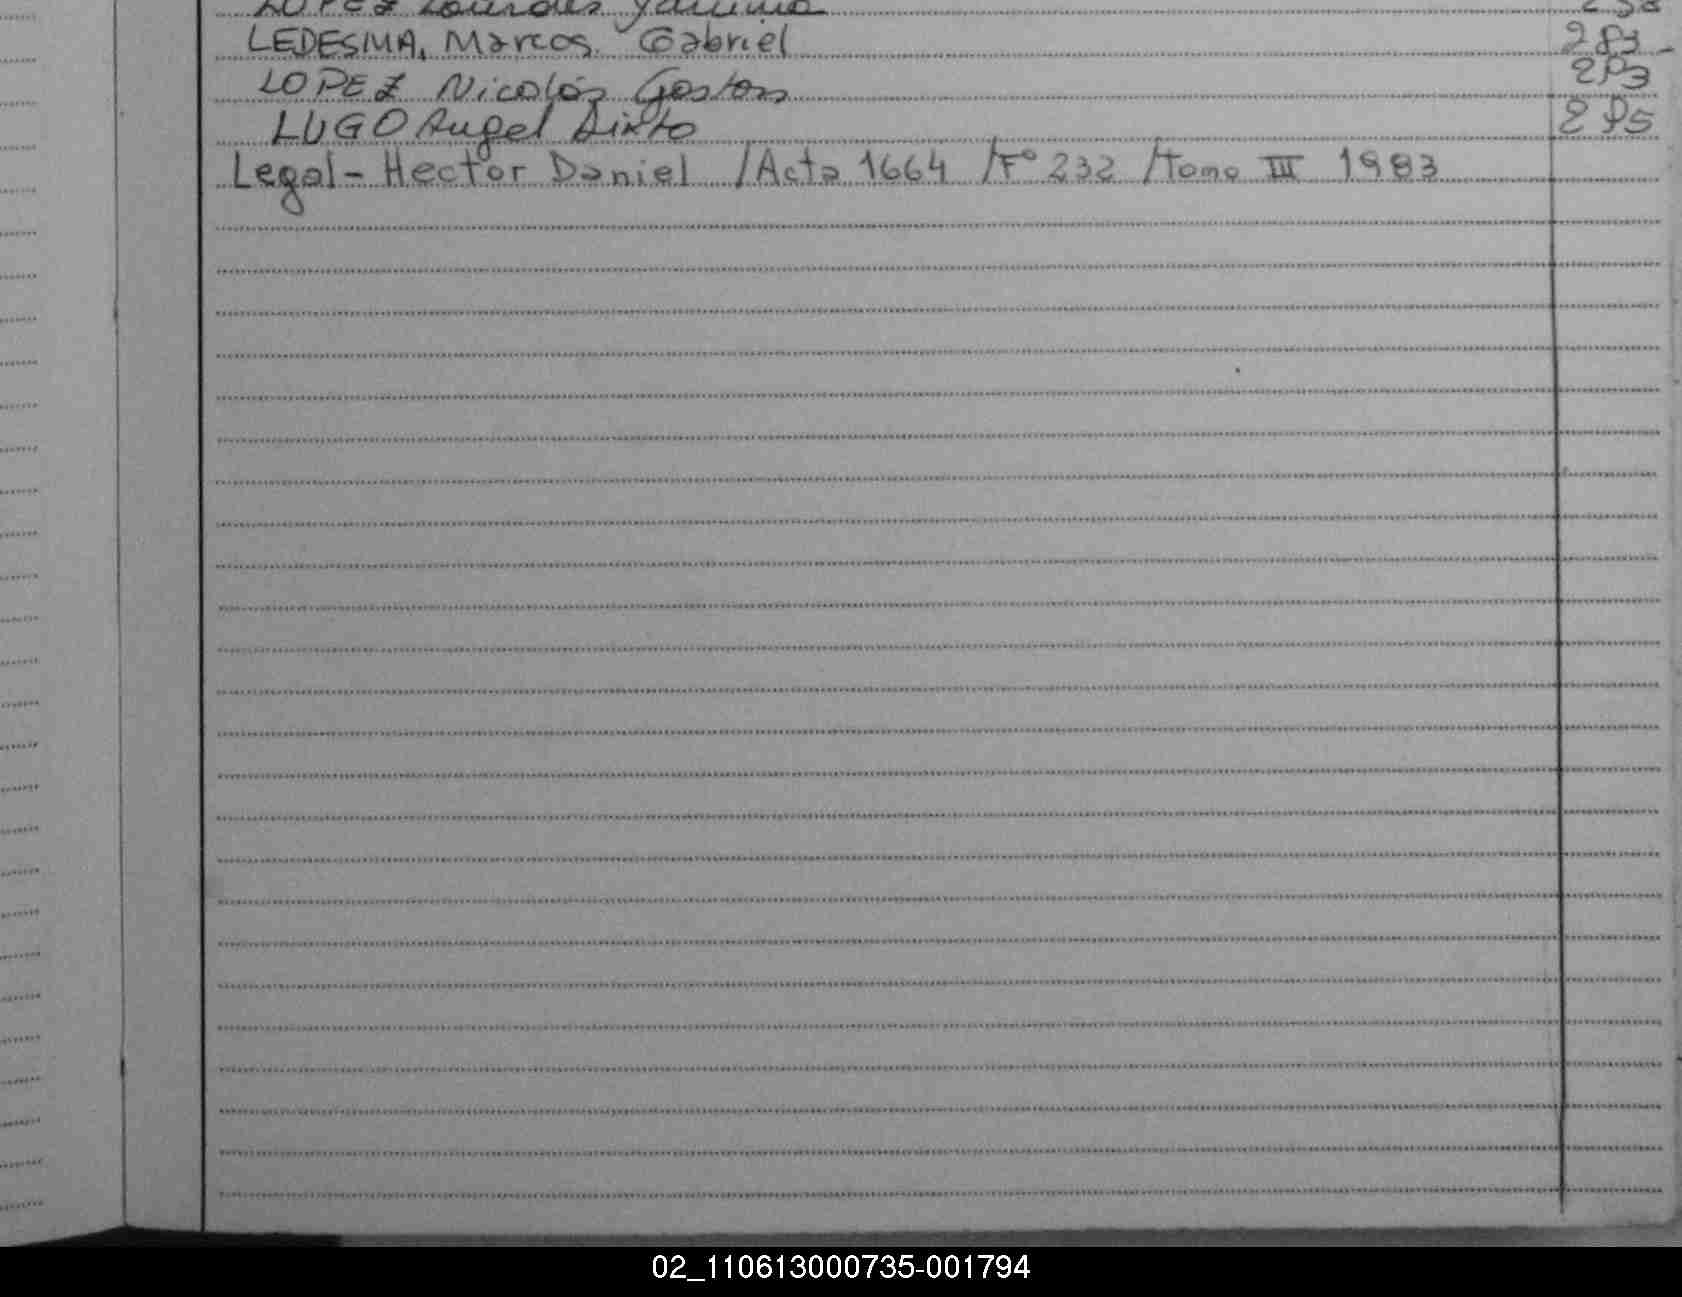 LOPEZ Lourdes Yanina
LEDESMA, Marcos Gabriel 281
LOPEZ Nicolás Gaston 283
LUGO Angel Sixto 285
Legal - Hector Daniel / Acta 1664 / Fº 232 / tomo III 1983
02_110613000735-001794